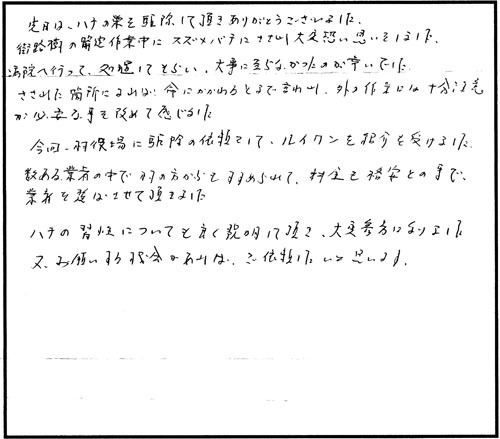 先日は、ハチの巣を駆除して頂きありがとうございました。
街路樹の剪定作業中にスズメバチにさされ大変恐い思いをしました。
病院へ行って、処置してもらい、大事に至らなかったのが幸いでした。
さされた箇所によれば命にかかわるとまで言われ、外の作業には十分注意
が必要な事を改めて感じました
今回、村役場に駆除の依頼をして、ルイワンを紹介を受けました。
数ある業者の中で村の方からも勧められて、料金も格安との事で、
業者を選ばさせて頂きました
ハチの習性についても良く説明して頂き、大変参考になりました
又、お願いする機会があれば、ご依頼したいと思います。